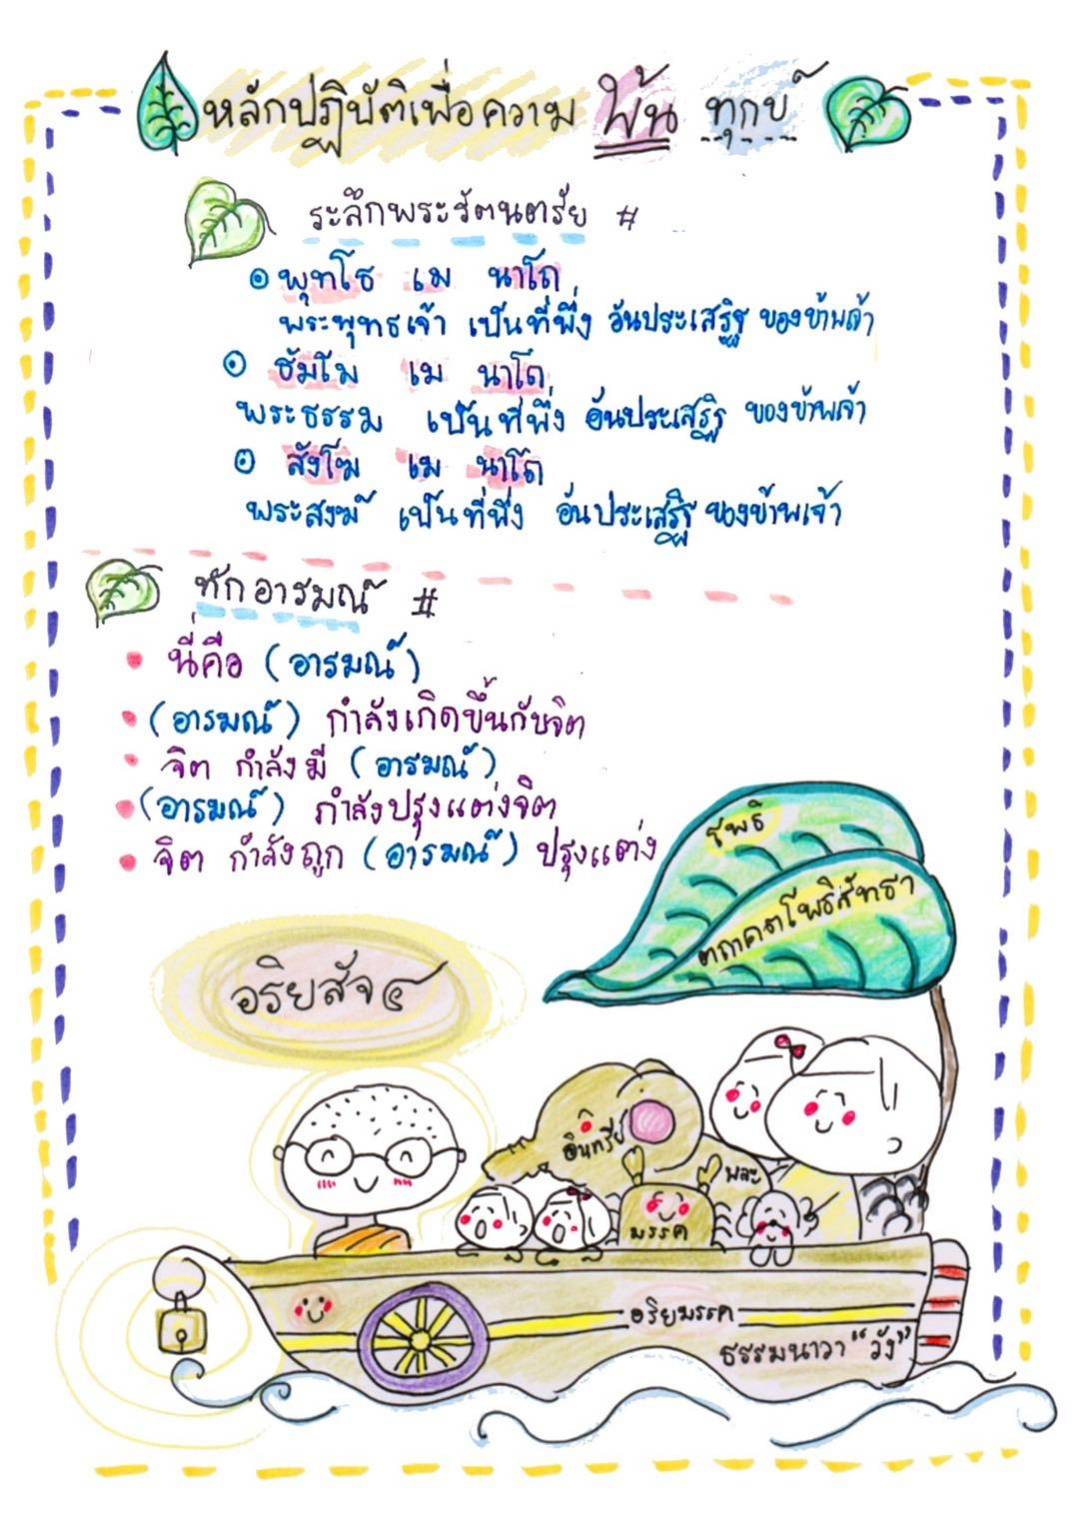 หลักปฏิบัติเพื่อความ พ้น ทุกข์
ระลึกพระรัตนตรัย #
พุทโธ เม นาโถ
พระพุทธเจ้า เป็นที่พึ่ง อันประเสริฐ ของข้าพเจ้า
ธัมโม เม นาโถ
พระธรรม เป็นที่พึ่ง อันประเสริฐ ของข้าพเจ้า
สังโฆ เม นาโถ
พระสงฆ์ เป็นที่พึ่ง อันประเสริฐ ของข้าพเจ้า
ทักอารมณ์ #
นี่คือ (อารมณ์)
(อารมณ์) กำลังเกิดขึ้นกับจิต
จิต กำลังมี (อารมณ์)
(อารมณ์) กำลังปรุงแต่งจิต
จิต กำลังถูก (อารมณ์) ปรุงแต่ง
โพธิ
ตถาคตโพธิสัทธา
อริยสัจ ๔
อินทรีย์
พละ
มรรค
อริยมรรค
ธรรมนาวา "วัง"